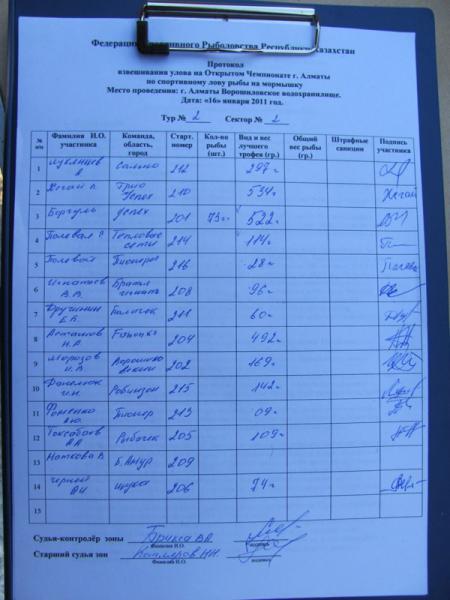 Федерация Спортивного Рыболовства Республики Казахстан
Протокол
взвешивания улова на Открытом Чемпионате г. Алматы
по спортивному лову рыбы на мормышку
Место проведения: г. Алматы Ворошиловское водохранилище.
Дата: «16» января 2011 год.
Тур № 2 Сектор № 2
№ п/п Фамилия И.О. участника Команда, область, город Старт. номер Кол-во рыбы (шт.) Вид и вес лучшего трофея (гр.) Общий вес рыбы (гр.) Штрафные санкции Подпись участника
1 212 297г
2 Хегай Трио Успех 210 534г Хегай
3 Боргуль Успех 201 73г 522г
4 Полевая Тепловые сети 214 114г
5 Полевой Пионер 216 28г
6 Игнатьев В.В. Братья 208 96г
7 Дружинин Е.В. 211 60г
8 204 492г
9 Морозов 202 169г
10 Робинзон 215 142г
11 Фоменко Пионер 213 09г
12 Токсобаев Рыбачек 205 109г
13 Б.Амур 209
14 Черный щука 206 74г
15
Судья-контролёр зоны
Фамилия И.О. подпись
Старший судья зон
Фамилия И.О. подпись